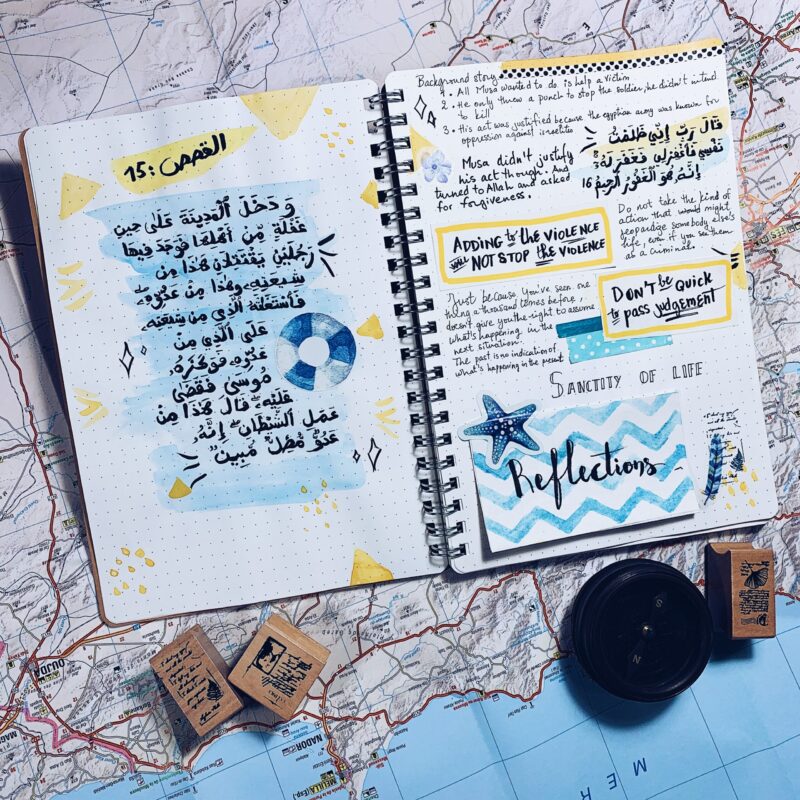 القصص : 15
وَدَخَلَ ٱلْمَدِينَةَ عَلَىٰ حِينِ
غَفْلَةٍ مِّنْ أَهْلِهَا فَوَجَدَ فِيهَا
رَجُلَيْنِ يَقْتَتِلَانِ هَٰذَا مِن
شِيعَتِهِۦ وَهَٰذَا مِنْ عَدُوِّهِۦ ۖ
فَٱسْتَغَٰثَهُ ٱلَّذِي مِن شِيعَتِهِۦ
عَلَى ٱلَّذِي مِنْ
عَدُوِّهِۦ فَوَكَزَهُۥ
مُوسَىٰ فَقَضَىٰ
عَلَيْهِ ۖ قَالَ هَٰذَا مِنْ
عَمَلِ ٱلشَّيْطَٰنِ ۖ إِنَّهُۥ
عَدُوٌّ مُّضِلٌّ مُّبِينٌ
Background story
1. All Musa wanted to do is help a victim.
2. He only threw a punch to stop the soldier, he didn't intend
to kill
3. His act was justified because the egyptian army was known for
oppression against israelites
Musa didn't justify
his act though. And
turned to Allah and asked
for forgiveness.
قَالَ رَبِّ إِنِّي ظَلَمْتُ
نَفْسِي فَٱغْفِرْ لِي فَغَفَرَ لَهُۥٓ ۚ
إِنَّهُۥ هُوَ ٱلْغَفُورُ ٱلرَّحِيمُ 16
ADDING to the VIOLENCE
will NOT STOP the VIOLENCE
Do not take the kind of
action that would might
jeopardize somebody else's
life, even if you see them
as a Criminal.
Just because You've seen one
thing a thousand times before,
doesn't give you the right to assume
what's happening in the
next situation.
The past is no indication of
what's happening in the present
DON'T be QUICK
to pass judgement
SANCTITY OF LIFE
Reflections
OUJDA
NADOR
MELILLA
(Esp.)
S
N
M E R